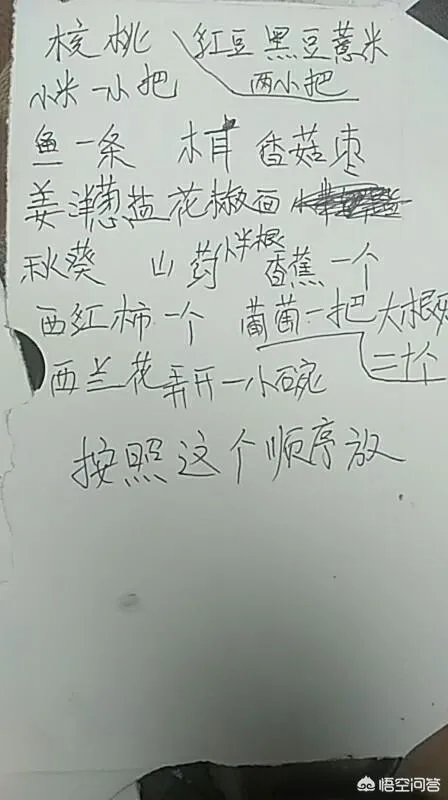 核桃 红豆黑豆薏米
小米一小把 两小把
鱼一条 木耳 香菇枣
姜洋葱盐花椒面
秋葵 山药小半根 香蕉一个
西红柿一个 葡萄一把大概
二十个
西兰花弄开一小碗
按照这个顺序放
悟空问答